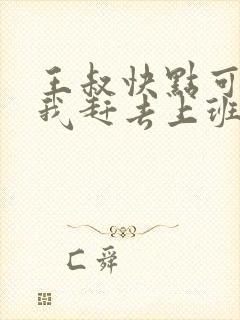 王叔快點可
我赶去上班
匚舜